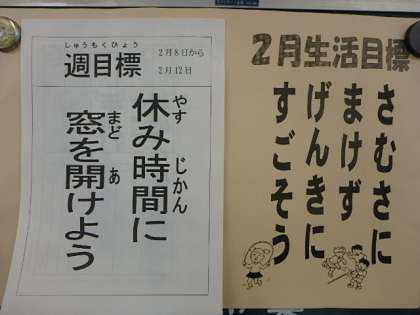 しゅうもくひょう
週目標
2月8日から
2月12日
やす じかん
休み時間に
まど あ
窓を開けよう
2月生活目標
さむさに
まけず
げんきに
すごそう